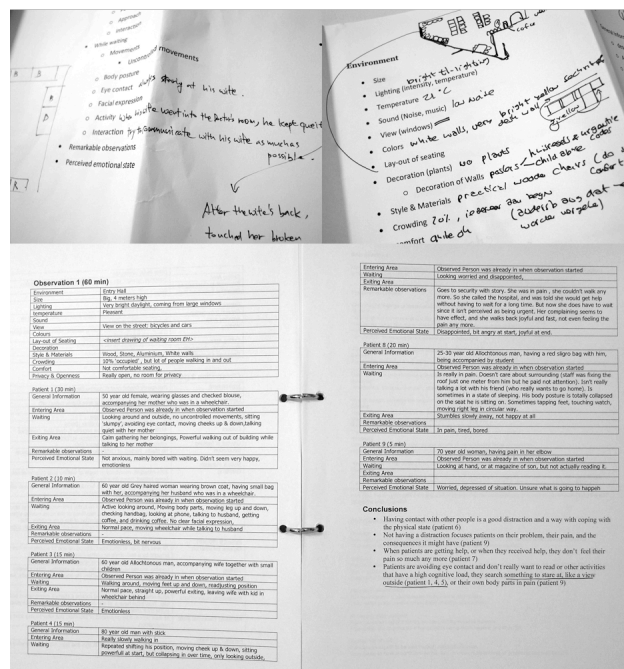 Approach
Interaction
While waiting
Movements
Uncontrolled movements
Body posture
Eye contact always at his wife.
Facial expression
Activity while his wife went into the doctor's room, he kept quiet
Interaction try to communicate with his wife as much as
possible.
Remarkable observations
Perceived emotional state
After the wife's back,
touched her broken
Environment
Size
Lighting (intensity, temperature) bright tl-lighting
Temperature 21 °C
Sound (Noise, music) low noise
View (windows)
Colors white walls, very bright yellow
yellow
Lay-out of seating
Decoration (plants) no plants
Decoration of Walls posters child abuse
Style & Materials practical wooden chairs
Crowding 20%,
Observation 1 (60 min)
Environment Entry Hall
Size Big, 4 meters high
Lighting Very bright daylight, coming from large windows
temperature Pleasant
Sound
View View on the street: bicycles and cars
Colours
Lay-out of Seating <insert drawing of waiting room EH>
Decoration
Style & Materials Wood, Stone, Aluminium, White walls
Crowding 10% 'occupied', but lot of people walking in and out
Comfort Not comfortable seating,
Privacy & Openness Really open, no room for privacy
Patient 1 (30 min)
General Information 50 year old female, wearing glasses and checked blouse,
accompanying her mother who was in a wheelchair.
Entering Area Observed Person was already in when observation started
Waiting Looking around and outside, no uncontrolled movements, sitting
'slumpy', avoiding eye contact, moving cheeks up & down,talking
quiet with her mother
Exiting Area Calm gathering her belongings, Powerful walking out of building while
talking to her mother
Remarkable observations
Perceived Emotional State Not anxious, mainly bored with waiting. Didn't seem very happy,
emotionless
Patient 2 (10 min)
General Information 60 year old Grey haired woman wearing brown coat, having small bag
with her, accompanying her husband who was in a wheelchair.
Entering Area Observed Person was already in when observation started
Waiting Active looking around, Moving body parts, moving leg up and down,
checking handbag, looking at phone, talking to husband, getting
coffee, and drinking coffee. No clear facial expression,
Exiting Area Normal pace, moving wheelchair while talking to husband
Remarkable observations -
Perceived Emotional State Emotionless, bit nervous
Patient 3 (15 min)
General Information 60 year old Allochtonous man, accompanying wife together with small
children
Entering Area Observed Person was already in when observation started
Waiting Walking around, moving feet up and down, readjusting position
Exiting Area Normal pace, straight up, powerful exiting, leaving wife with kid in
wheelchair behind
Remarkable observations -
Perceived Emotional State Emotionless
Patient 4 (15 min)
General Information 80 year old men with stick
Entering Area Really slowly walking in
Waiting Repeated shifting his position, moving cheek up & down, sitting
powerfull at start, but collapsing in over time, only looking outside,
Entering Area Observed Person was already in when observation started
Waiting Looking worried and disappointed,
Exiting Area
Remarkable observations Goes to security with story. She was in pain , she couldn't walk any
more. So she called the hospital, and was told she would get help
without having to wait for a long time. But now she does have to wait
since it isn't perceived as being urgent. Her complaining seems to
have effect, and she walks back joyful and fast, not even feeling the
pain any more.
Perceived Emotional State Disappointed, bit angry at start, joyful at end.
Patient 8 (20 min)
General Information 25-30 year old Allochtonous man, having a red sligro bag with him,
being accompanied by student
Entering Area Observed Person was already in when observation started
Waiting Is really in pain. Doesn't care about surrounding (staff was fixing the
roof just one meter from him but he paid not attention). Isn't really
talking a lot with his friend (who really wants to go home). Is
sometimes in a state of sleeping. His body posture is totally collapsed
on the seat he is sitting on. Sometimes tapping feet, touching watch,
moving right leg in circular way.
Exiting Area Stumbles slowly away, not happy at all
Remarkable observations
Perceived Emotional State In pain, tired, bored
Patient 9 (5 min)
General Information 70 year old woman, having pain in her elbow
Entering Area Observed Person was already in when observation started
Waiting Looking at hand, or at magazine of son, but not actually reading it.
Exiting Area
Remarkable observations
Perceived Emotional State Worried, depressed of situation. Unsure what is going to happen
Conclusions
Having contact with other people is a good distraction and a way with coping with
the physical state (patient 6)
Not having a distraction focuses patients on their problem, their pain, and the
consequences it might have (patient 9)
When patients are getting help, or when they received help, they don't feel their
pain so much any more (patient 7)
Patients are avoiding eye contact and don't really want to read or other activities
that have a high cognitive load, they search something to stare at, like a view
outside (patient 1, 4, 5), or their own body parts in pain (patient 9)